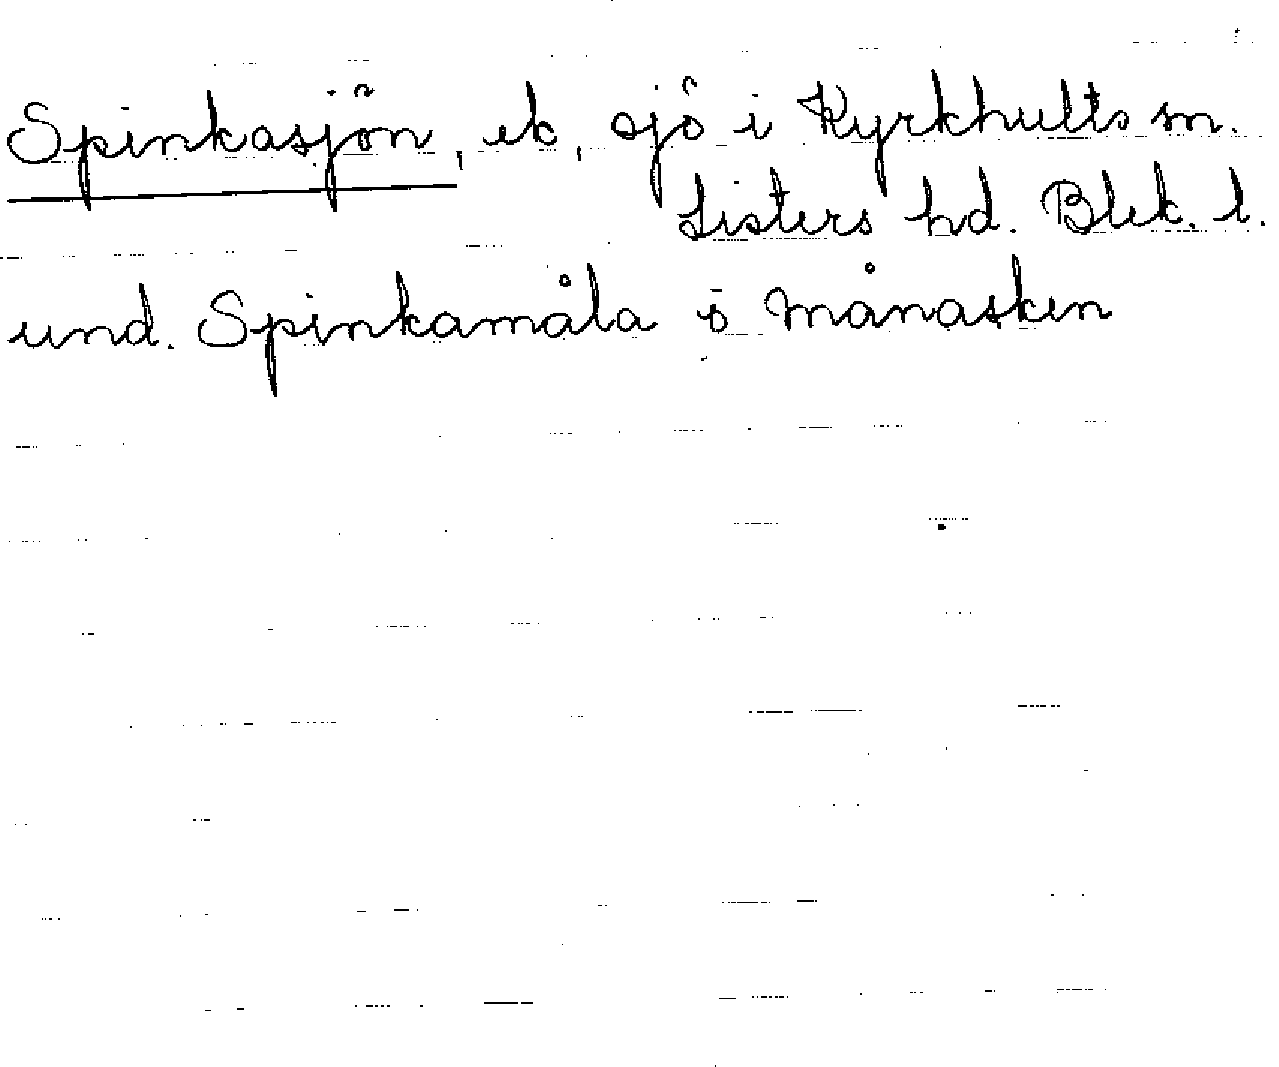 Spinkasjön, ek, sjö i Kyrkhults sn.
Listers hd. Blek. l.
und. Spinkamåla o Månasken